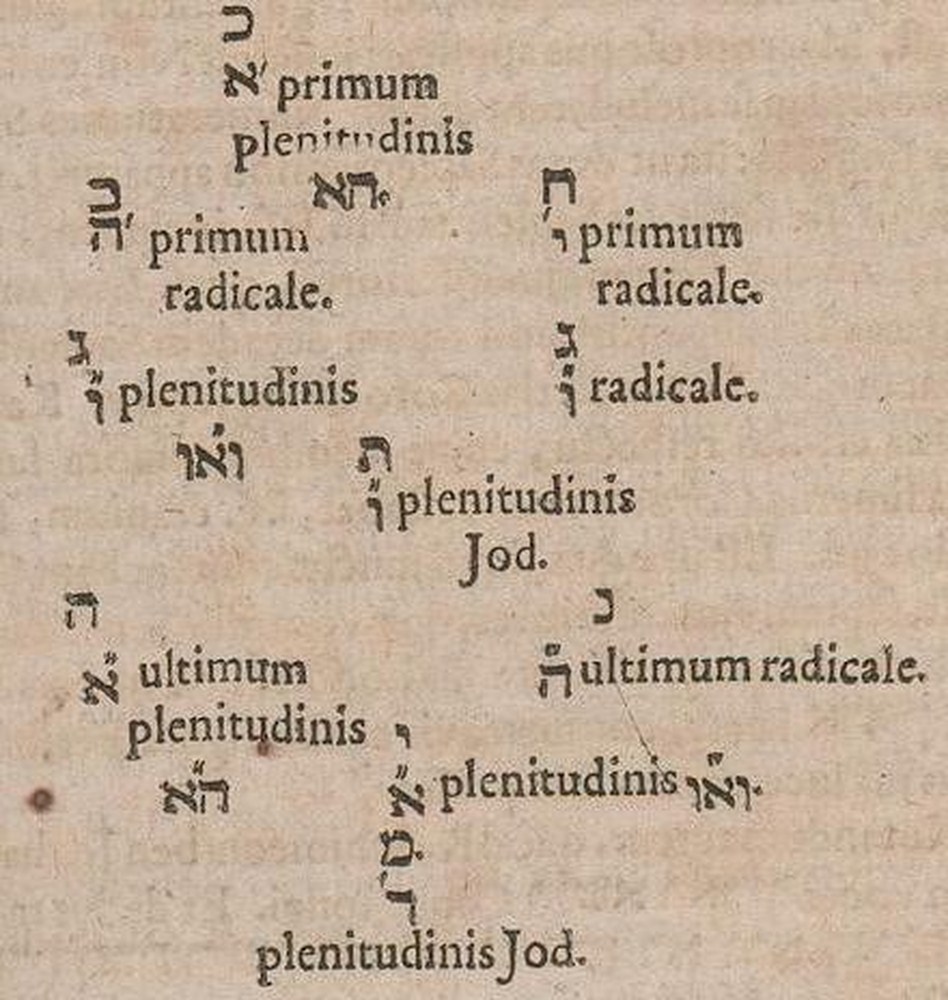 כ
א׳ primum
plenitudinis
הא.
ב ח
ה׳ primum ו׳ primum
radicale. radicale.
ג ג
ו̈ plenitudinis ו̈ radicale.
ואו ת
ו̈ plenitudinis
Jod.
ה נ
א̈ ultimum ה̈ ultimum radicale.
plenitudinis י
הא א̈ plenitudinis ואו.
מ.
plenitudinis Jod.